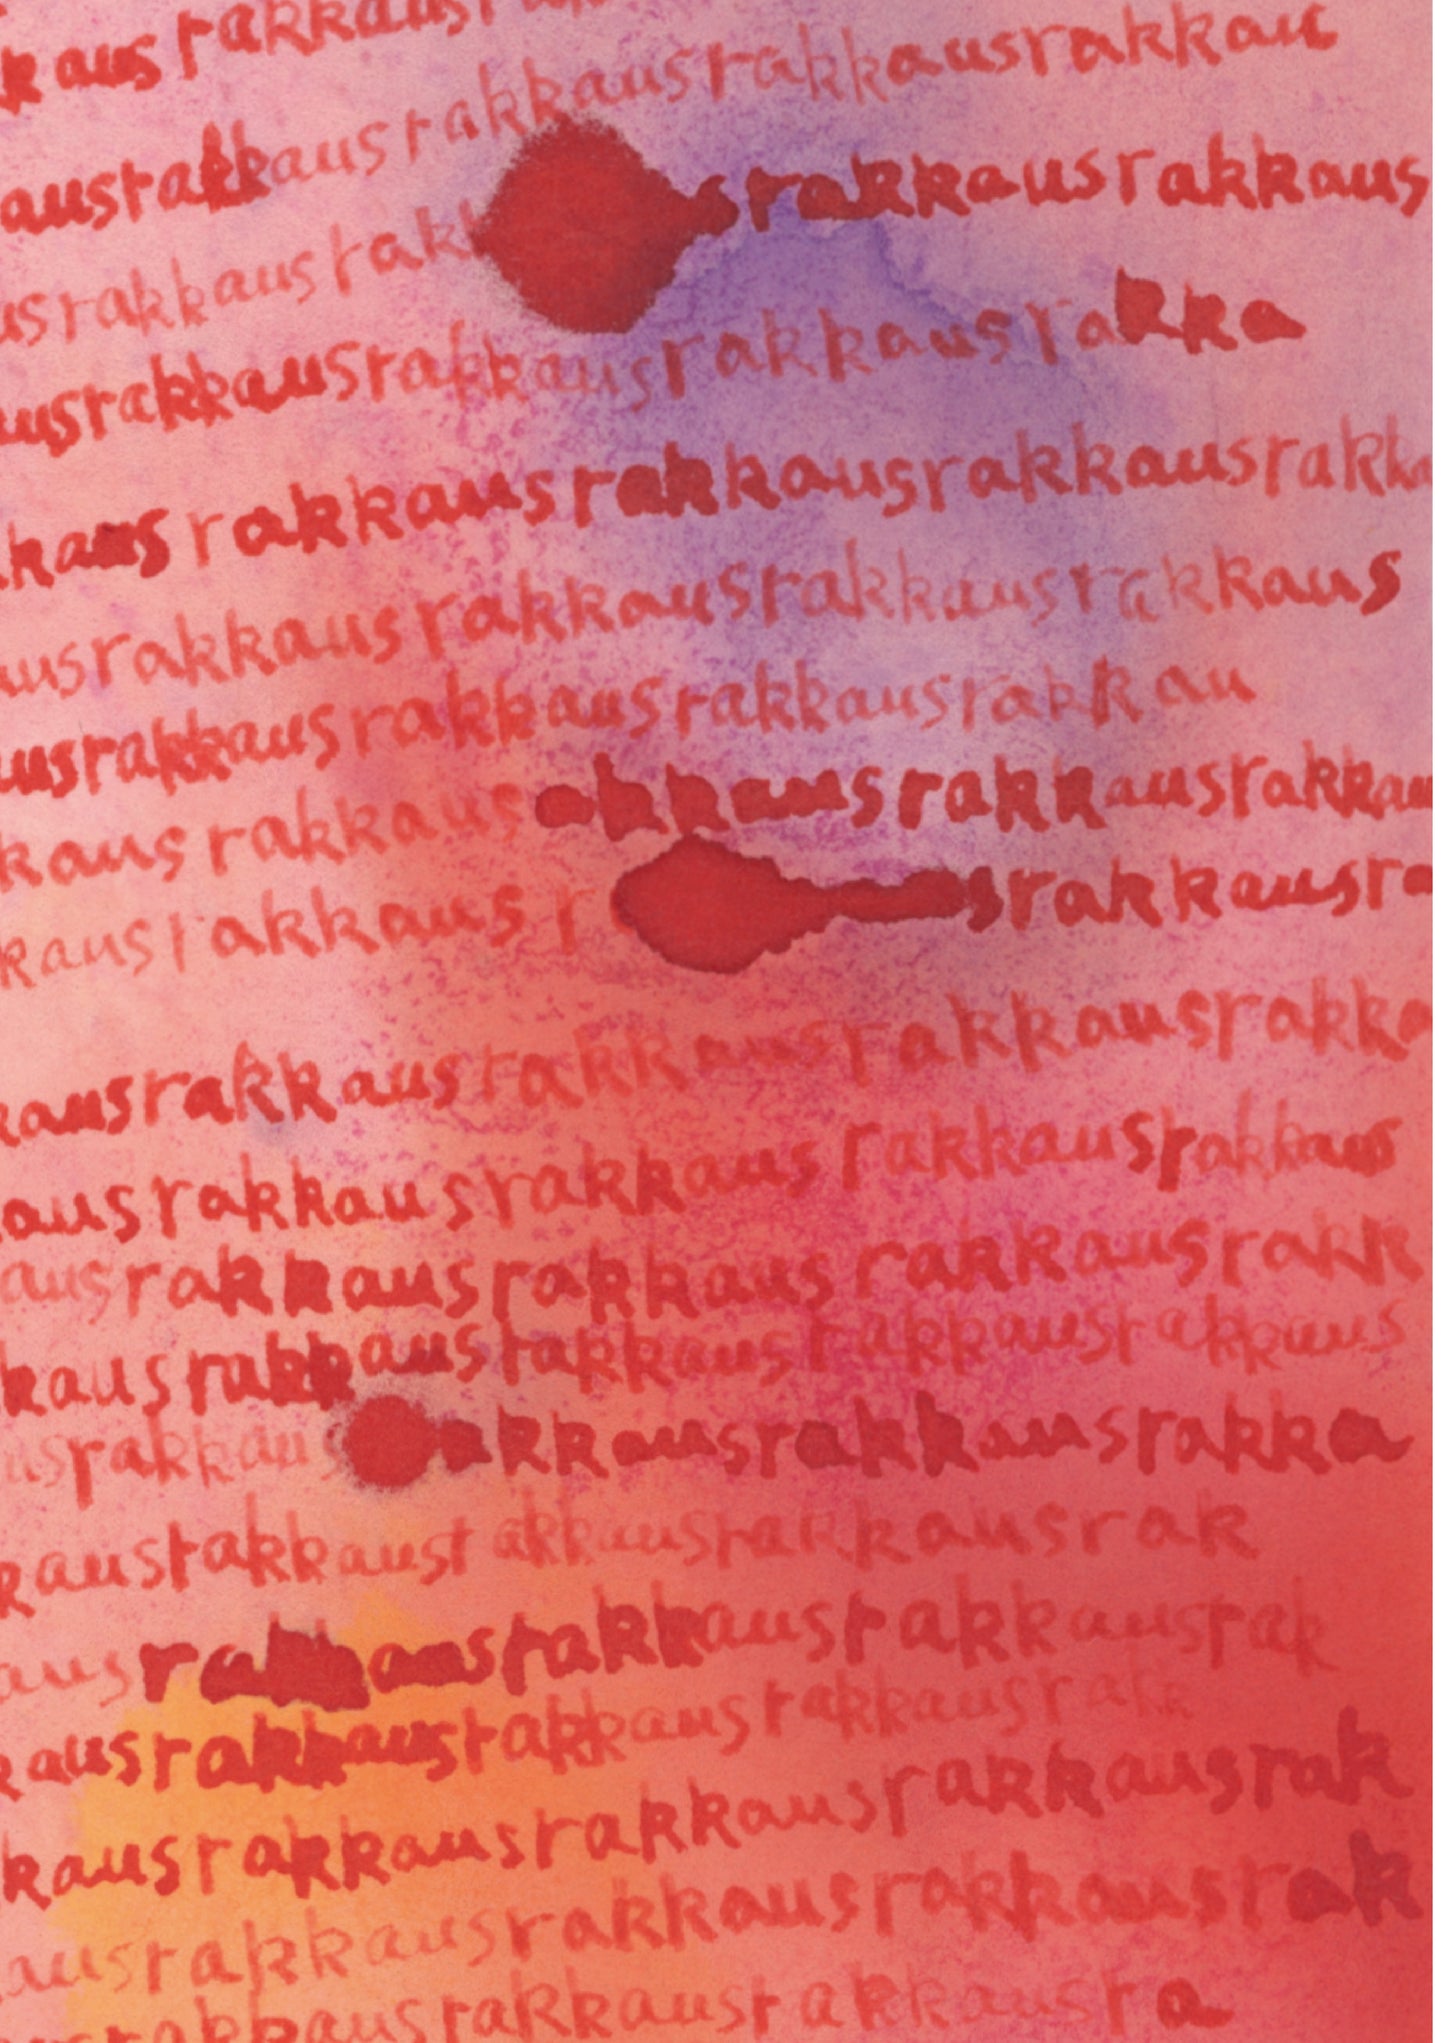 kausrakkausra
ausrakkausrakkausrakkausrakkau
usrakkausrak srakkausrakkaus
ausrakkausrakkausrakkausrakka
kausrakkausrakkausrakkausrakka
ausrakkausrakkausrakkausrakkaus
ausrakkausrakkausrakkausrakkau
kausrakkausakkausrakkausrakkau
kausrakkausr srakkausra
kausrakkausrakkausrakkausrakka
ausrakkausrakkausrakkausrakkaus
ausrakkausrakkausrakkausrakk
kausrakkausrakkausrakkausrakkaus
usrakkaus akkausrakkausrakka
kausrakkausrakkausrakkausrak
ausrakkausrakkausrakkausrak
kausrakkausrakkausrakkausrakk
kausrakkausrakkausrakkausrak
ausrakkausrakkausrakkausrak
usrakkausrakkausrakkausra